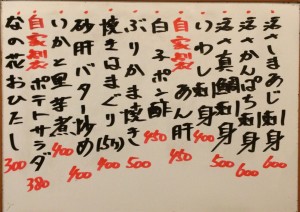 活〆しまあじ刺身 600
活〆かんぱち刺身 600
活〆真鯛刺身 500
いわし刺身 400
自家製 あん肝 450
白子ポン酢 450
ぶりかま焼き 500
焼きはまぐり(5ヶ) 400
砂肝バター炒め 400
いかと里芋煮 400
自家製 ポテトサラダ 380
なの花おひたし 300